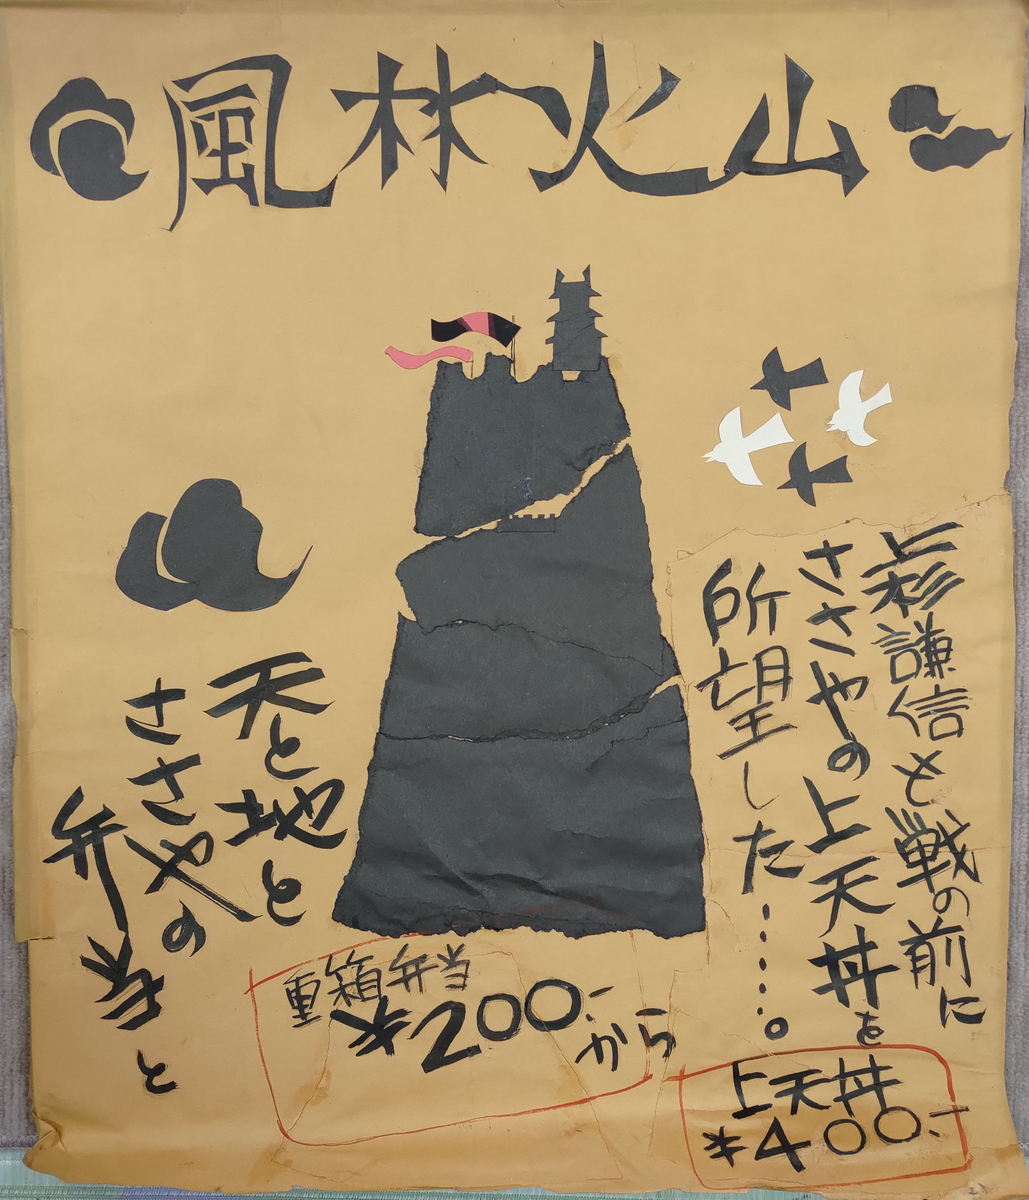 風林火山
上杉謙信も戦の前に
ささやの上天丼を
所望した……。
上天丼
¥400.-
天と地と
ささやの
弁当と
重箱弁当
¥200.-
から